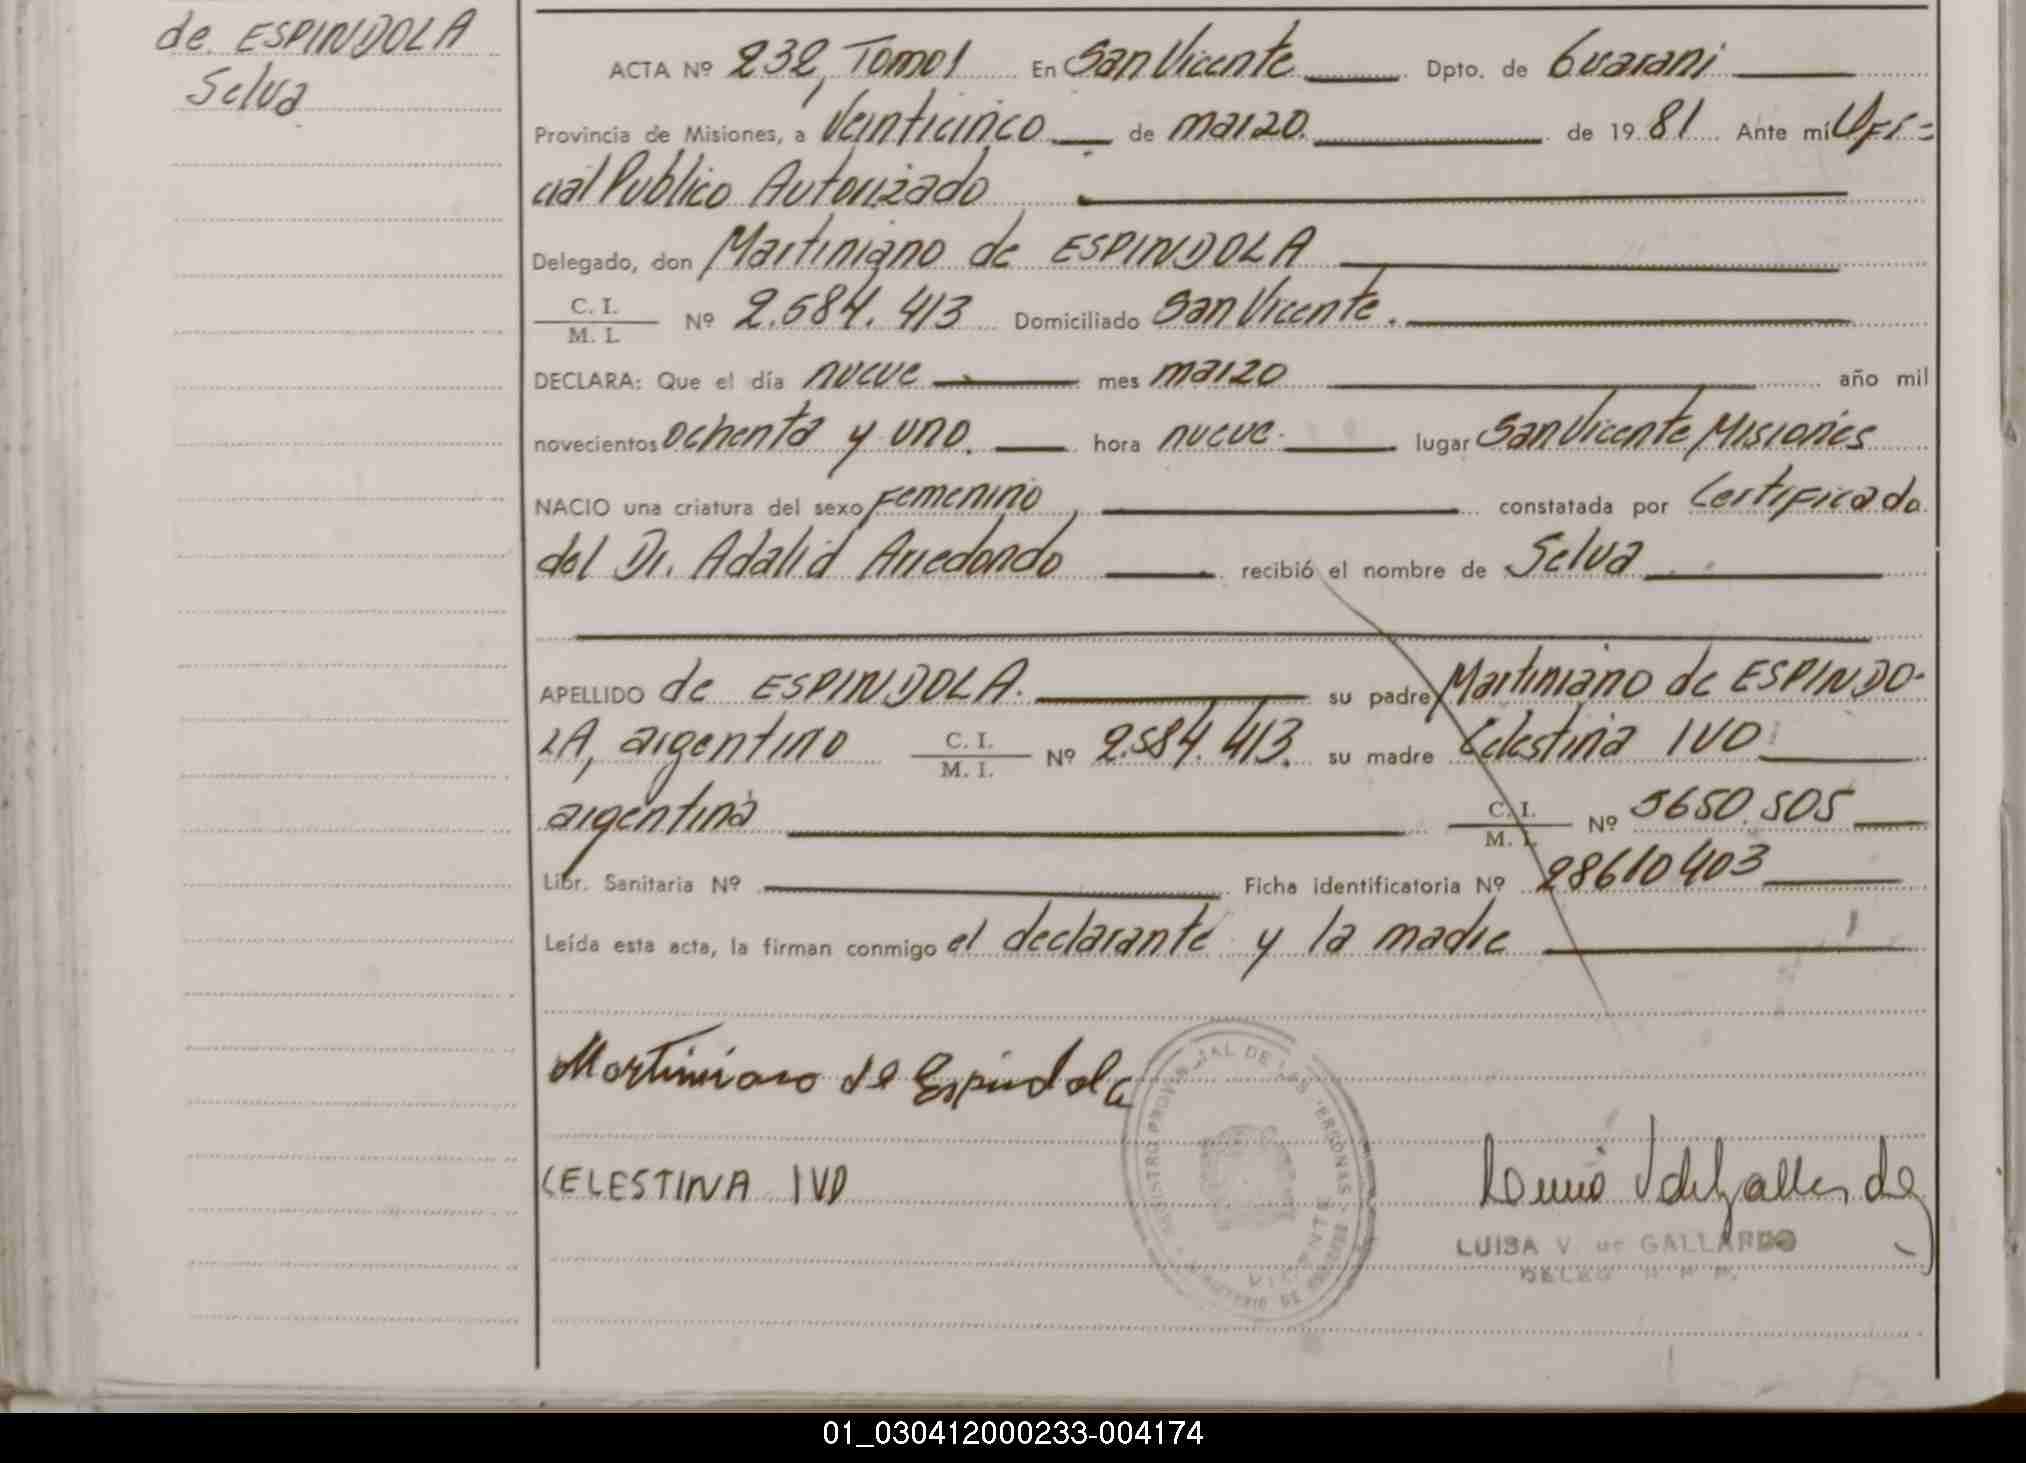 de ESPINDOLA
Selva
ACTA Nº 232, Tomo 1 En San Vicente Dpto. de Guarani
Provincia de Misiones, a Veinticinco de marzo. de 19 81 Ante mí Ofi=
cial Publico Autorizado
Delegado, don Martiniano de ESPINDOLA
C. I.
M. I. Nº 2.584.413 Domiciliado San Vicente.
DECLARA: Que el día nueve mes marzo año mil
novecientos ochenta y uno. hora nueve. lugar San Vicente Misiones
NACIO una criatura del sexo Femenino, constatada por Certificado
del Dr. Adalid Arredondo recibió el nombre de Selva
APELLIDO de ESPINDOLA. su padre Martiniano de ESPINDO-
LA, argentino C. I.
M. I. Nº 2.584.413. su madre Celestina IVO
argentina C. I.
M. I. Nº 5650.505
Libr. Sanitaria Nº Ficha identificatoria Nº 28610403
Leída esta acta, la firman conmigo el declarante y la madre
Martiniano de Espindola
CELESTINA IVO
REGISTRO PROVINCIAL DE LAS PERSONAS
VICENTE
LUISA V. de GALLARDO
01_030412000233-004174